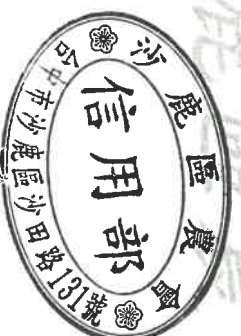 沙鹿區農會
信用部
台中市沙鹿區沙田路131號